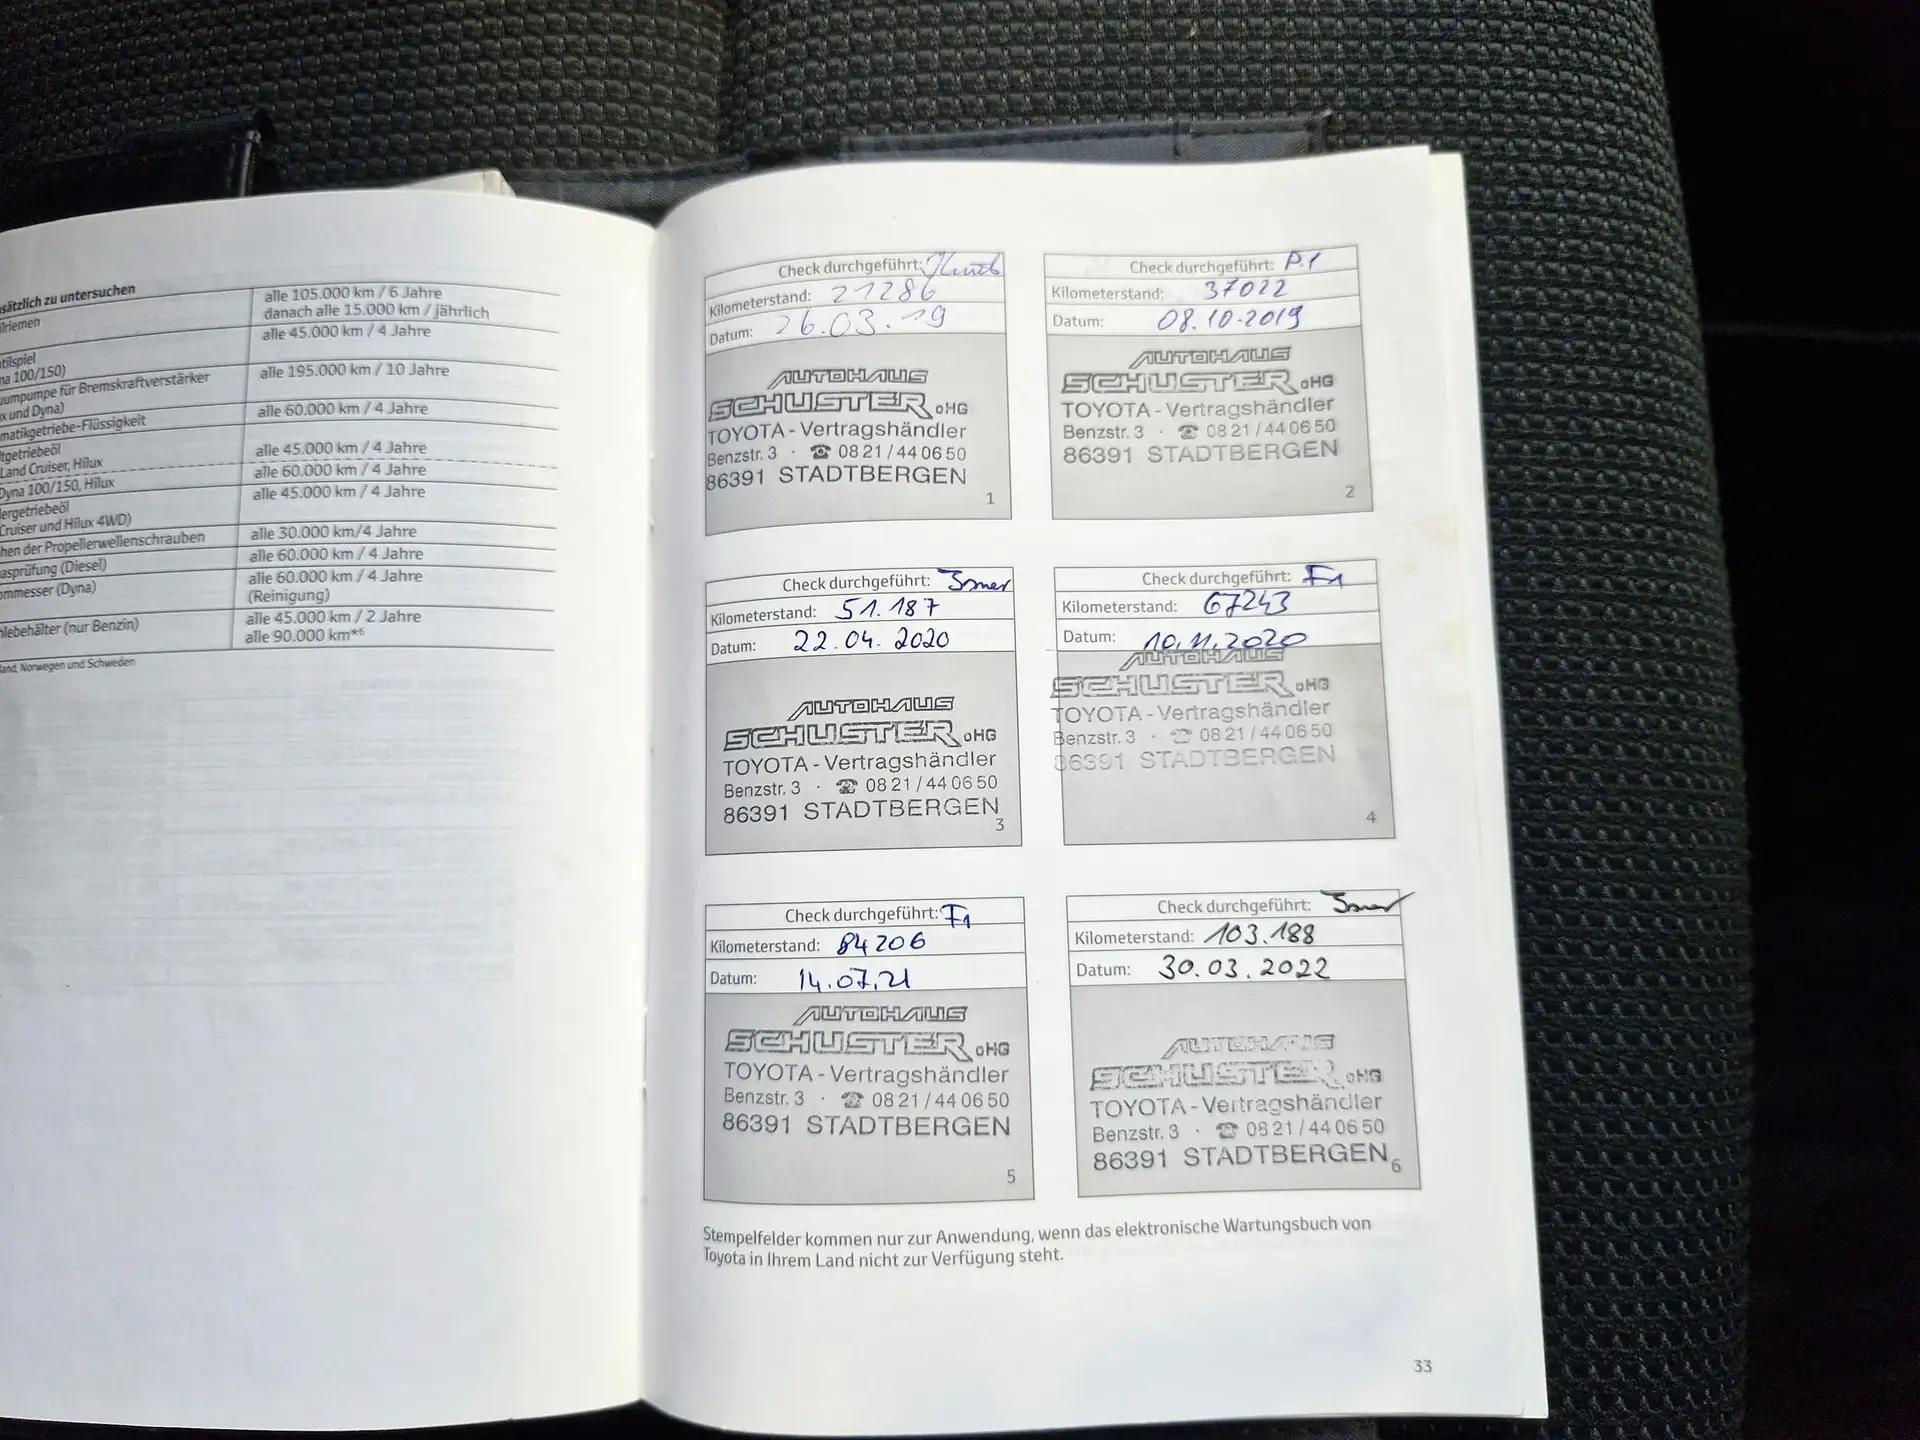 sätzlich zu untersuchen
alle 105.000 km / 6 Jahre
danach alle 15.000 km / jährlich
alle 45.000 km / 4 Jahre
alle 195.000 km / 10 Jahre
umpumpe für Bremskraftverstärker
x und Dyna)
alle 60.000 km / 4 Jahre
matikgetriebe-Flüssigkeit
tgetriebeöl
alle 45.000 km / 4 Jahre
Land Cruiser, Hilux
alle 60.000 km / 4 Jahre
Dyna 100/150, Hilux
alle 45.000 km / 4 Jahre
ergetriebeöl
Cruiser und Hilux 4WD)
hen der Propellerwellenschrauben
alle 30.000 km/4 Jahre
asprüfung (Diesel)
alle 60.000 km / 4 Jahre
mmesser (Dyna)
alle 60.000 km / 4 Jahre
(Reinigung)
hlebehälter (nur Benzin)
alle 45.000 km / 2 Jahre
alle 90.000 km*6
land, Norwegen und Schweden
Check durchgeführt:
Kilometerstand: 21286
Datum: 26.03.19
AUTOHAUS
SCHUSTER oHG
TOYOTA - Vertragshändler
Benzstr. 3 · ☎ 08 21 / 44 06 50
86391 STADTBERGEN
1
Check durchgeführt: P.1
Kilometerstand: 37022
Datum: 08.10.2019
AUTOHAUS
SCHUSTER oHG
TOYOTA - Vertragshändler
Benzstr. 3 · ☎ 08 21 / 44 06 50
86391 STADTBERGEN
2
Check durchgeführt:
Kilometerstand: 51.187
Datum: 22.04.2020
AUTOHAUS
SCHUSTER oHG
TOYOTA - Vertragshändler
Benzstr. 3 · ☎ 08 21 / 44 06 50
86391 STADTBERGEN
3
Check durchgeführt: F1
Kilometerstand: 67243
Datum: 10.11.2020
AUTOHAUS
SCHUSTER oHG
TOYOTA - Vertragshändler
Benzstr. 3 · ☎ 08 21 / 44 06 50
86391 STADTBERGEN
4
Check durchgeführt: F1
Kilometerstand: 84206
Datum: 14.07.21
AUTOHAUS
SCHUSTER oHG
TOYOTA - Vertragshändler
Benzstr. 3 · ☎ 08 21 / 44 06 50
86391 STADTBERGEN
5
Check durchgeführt:
Kilometerstand: 103.188
Datum: 30.03.2022
AUTOHAUS
SCHUSTER oHG
TOYOTA - Vertragshändler
Benzstr. 3 · ☎ 08 21 / 44 06 50
86391 STADTBERGEN
6
Stempelfelder kommen nur zur Anwendung, wenn das elektronische Wartungsbuch von
Toyota in Ihrem Land nicht zur Verfügung steht.
33